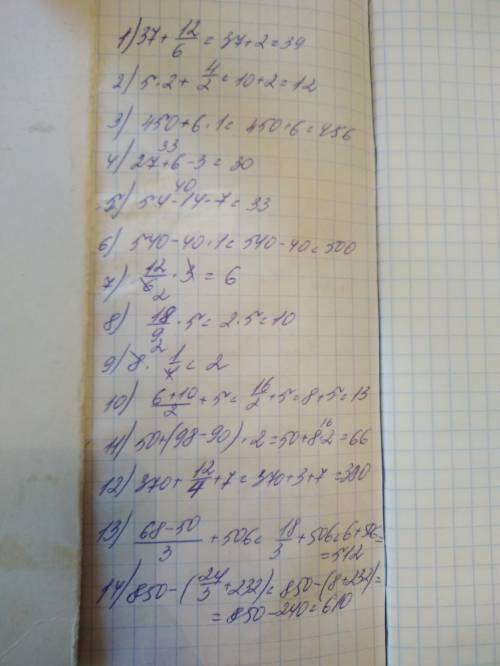 1) 37 + 12/6 = 37 + 2 = 39
2) 5 · 2 + 4/2 = 10 + 2 = 12
3) 450 + 6 · 1 = 450 + 6 = 456
33
4) 27 + 6 - 3 = 30
40
5) 54 - 14 - 7 = 33
6) 540 - 40 · 1 = 540 - 40 = 500
7) 12/6 · 3 = 6
2
8) 18/9 · 5 = 2 · 5 = 10
2
9) 8 · 1/4 = 2
10) (6 + 10)/2 + 5 = 16/2 + 5 = 8 + 5 = 13
16
11) 50 + (98 - 90) · 2 = 50 + 8·2 = 66
12) 370 + 12/4 + 7 = 370 + 3 + 7 = 380
13) (68 - 50)/3 + 506 = 18/3 + 506 = 6 + 506 =
= 512
14) 850 - (24/3 + 232) = 850 - (8 + 232) =
= 850 - 240 = 610